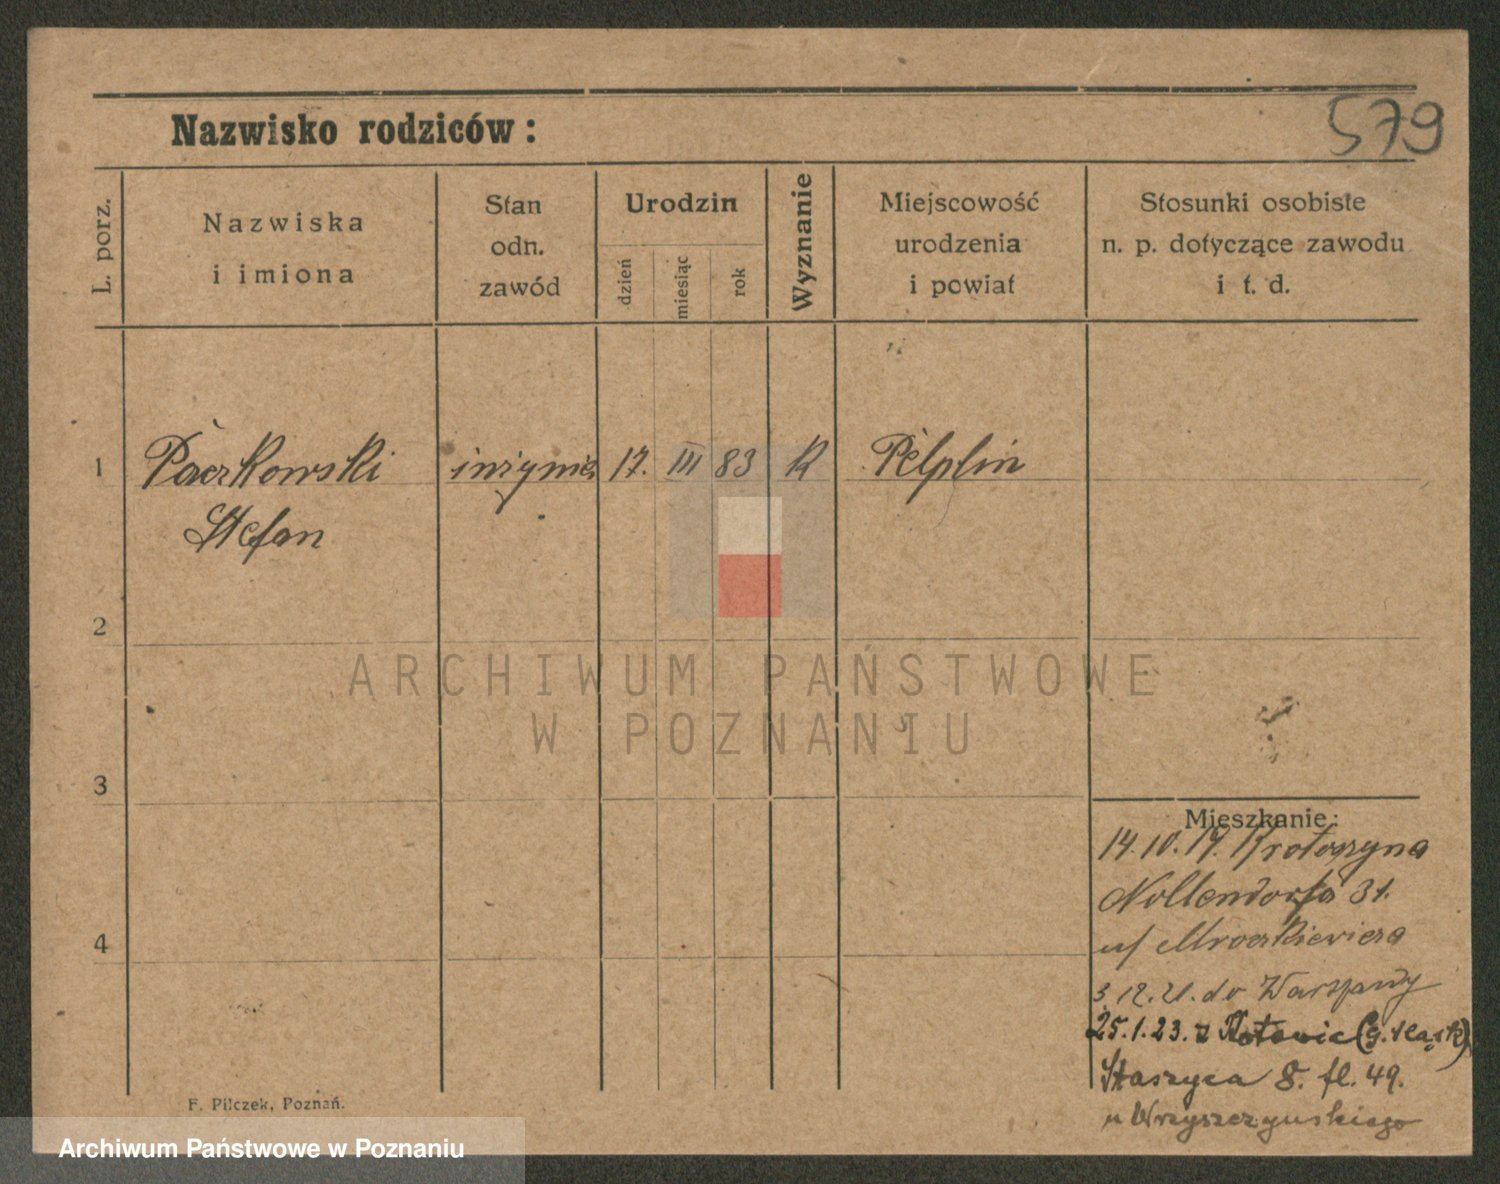 579
Nazwisko rodziców:
L. porz.
Nazwiska
i imiona
Stan
odn.
zawód
Urodzin
dzień
miesiąc
rok
Wyznanie
Miejscowość
urodzenia
i powiat
Stosunki osobiste
n. p. dotyczące zawodu
i t. d.
1
Paczkowski
Stefan
inżynier
17. III 83
K
Pelplin
2
3
4
ARCHIWUM PAŃSTWOWE
W POZNANIU
Mieszkanie:
14.10.19. Krotoszyna
Nollendorfa 31.
u/ Mroczkiewicza
3.12.21. do Warszawy
25.1.23. z Katowic (g. sląsk)
Staszyca 8. fl. 49.
u Wrzyszczyńskiego
F. Pilczek, Poznań.
Archiwum Państwowe w Poznaniu